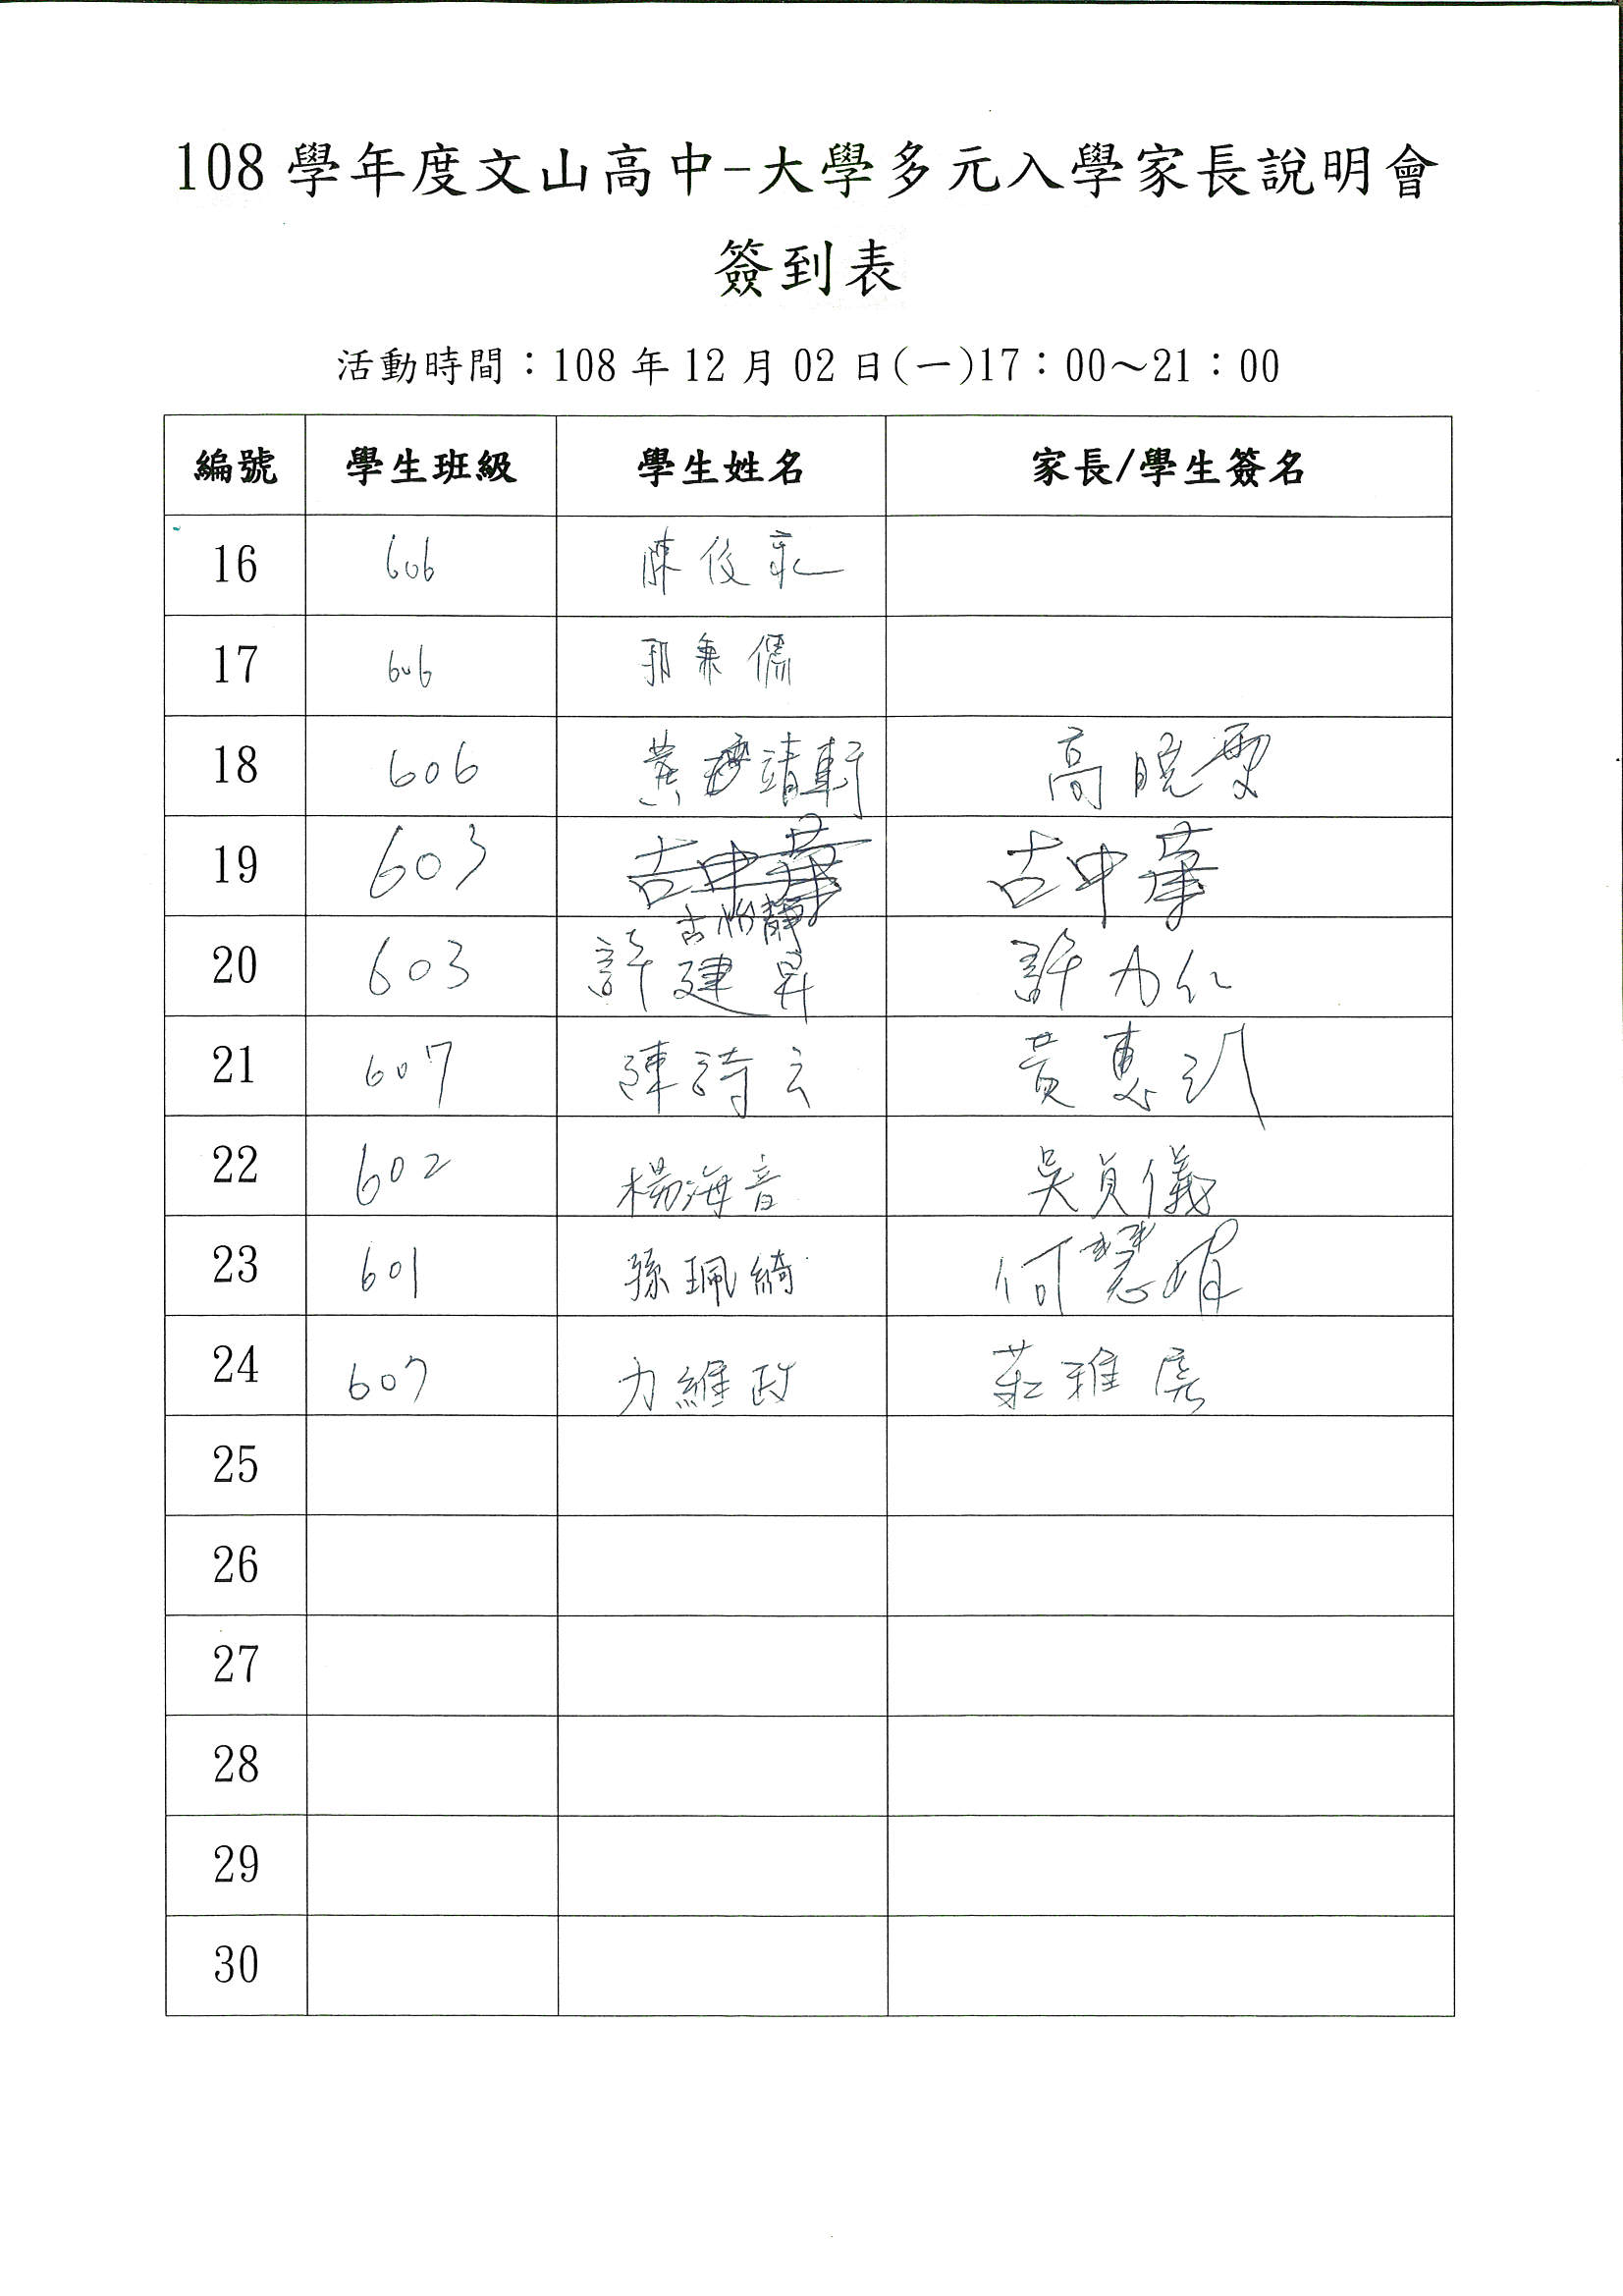 108 學年度文山高中-大學多元入學家長說明會
簽到表
活動時間：108 年 12 月 02 日(一)17：00～21：00
編號 學生班級 學生姓名 家長/學生簽名
16 606 陳俊
17 606 郭秉儒
18 606 黃靖軒 高曉雯
19 603 古中華 古中華
古怡靜
20 603 許建昇 許力仁
21 607 陳詩云 黃惠
22 602 楊海音 吳貞儀
23 601 孫珮綺 何慧
24 607 力維政 莊雅
25
26
27
28
29
30